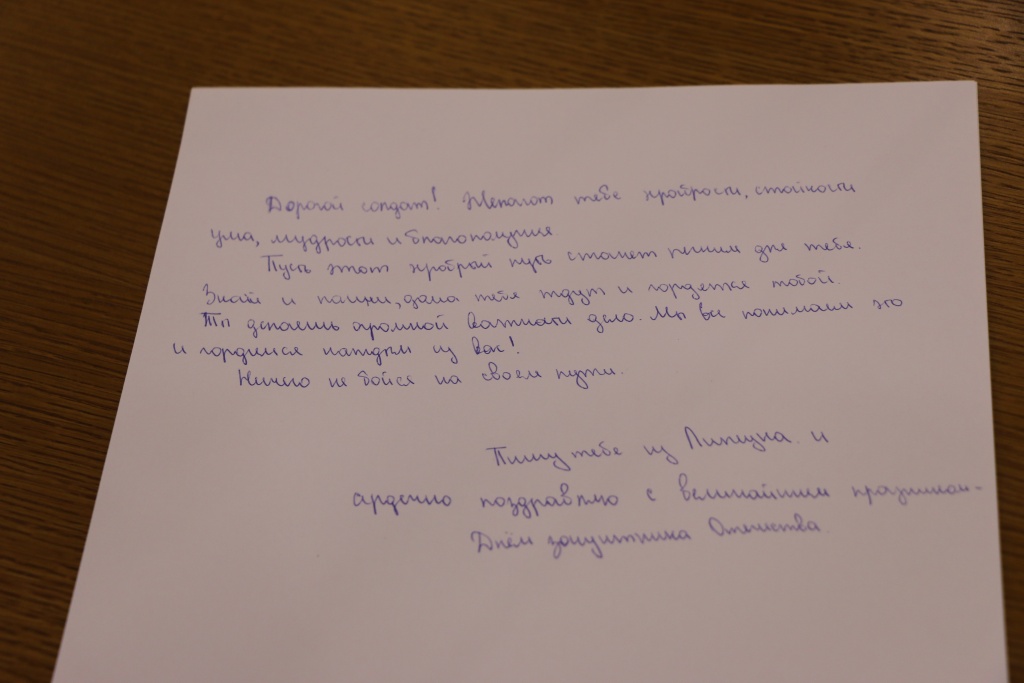 Дорогой солдат! Желают тебе храбрости, стойкости
ума, мудрости и благополучия.
Пусть этот храбрый путь станет легким для тебя.
Знай и помни, дома тебя ждут и гордятся тобой.
Ты делаешь огромной важности дело. Мы все понимаем это
и гордимся каждым из вас!
Ничего не бойся на своем пути.
Пишу тебе из Липецка и
сердечно поздравляю с величайшим праздником-
Днём защитника Отечества.